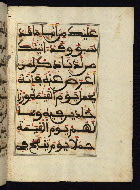 عليك من انبا ما قد
سبق وقد اتينك
من لدنا ذكرا من
اعرض عنه فانه
يحمل يوم القيمة
وزرا خلدين فيه وسا
لهم يوم القيمة
حملا يوم ينفخ في